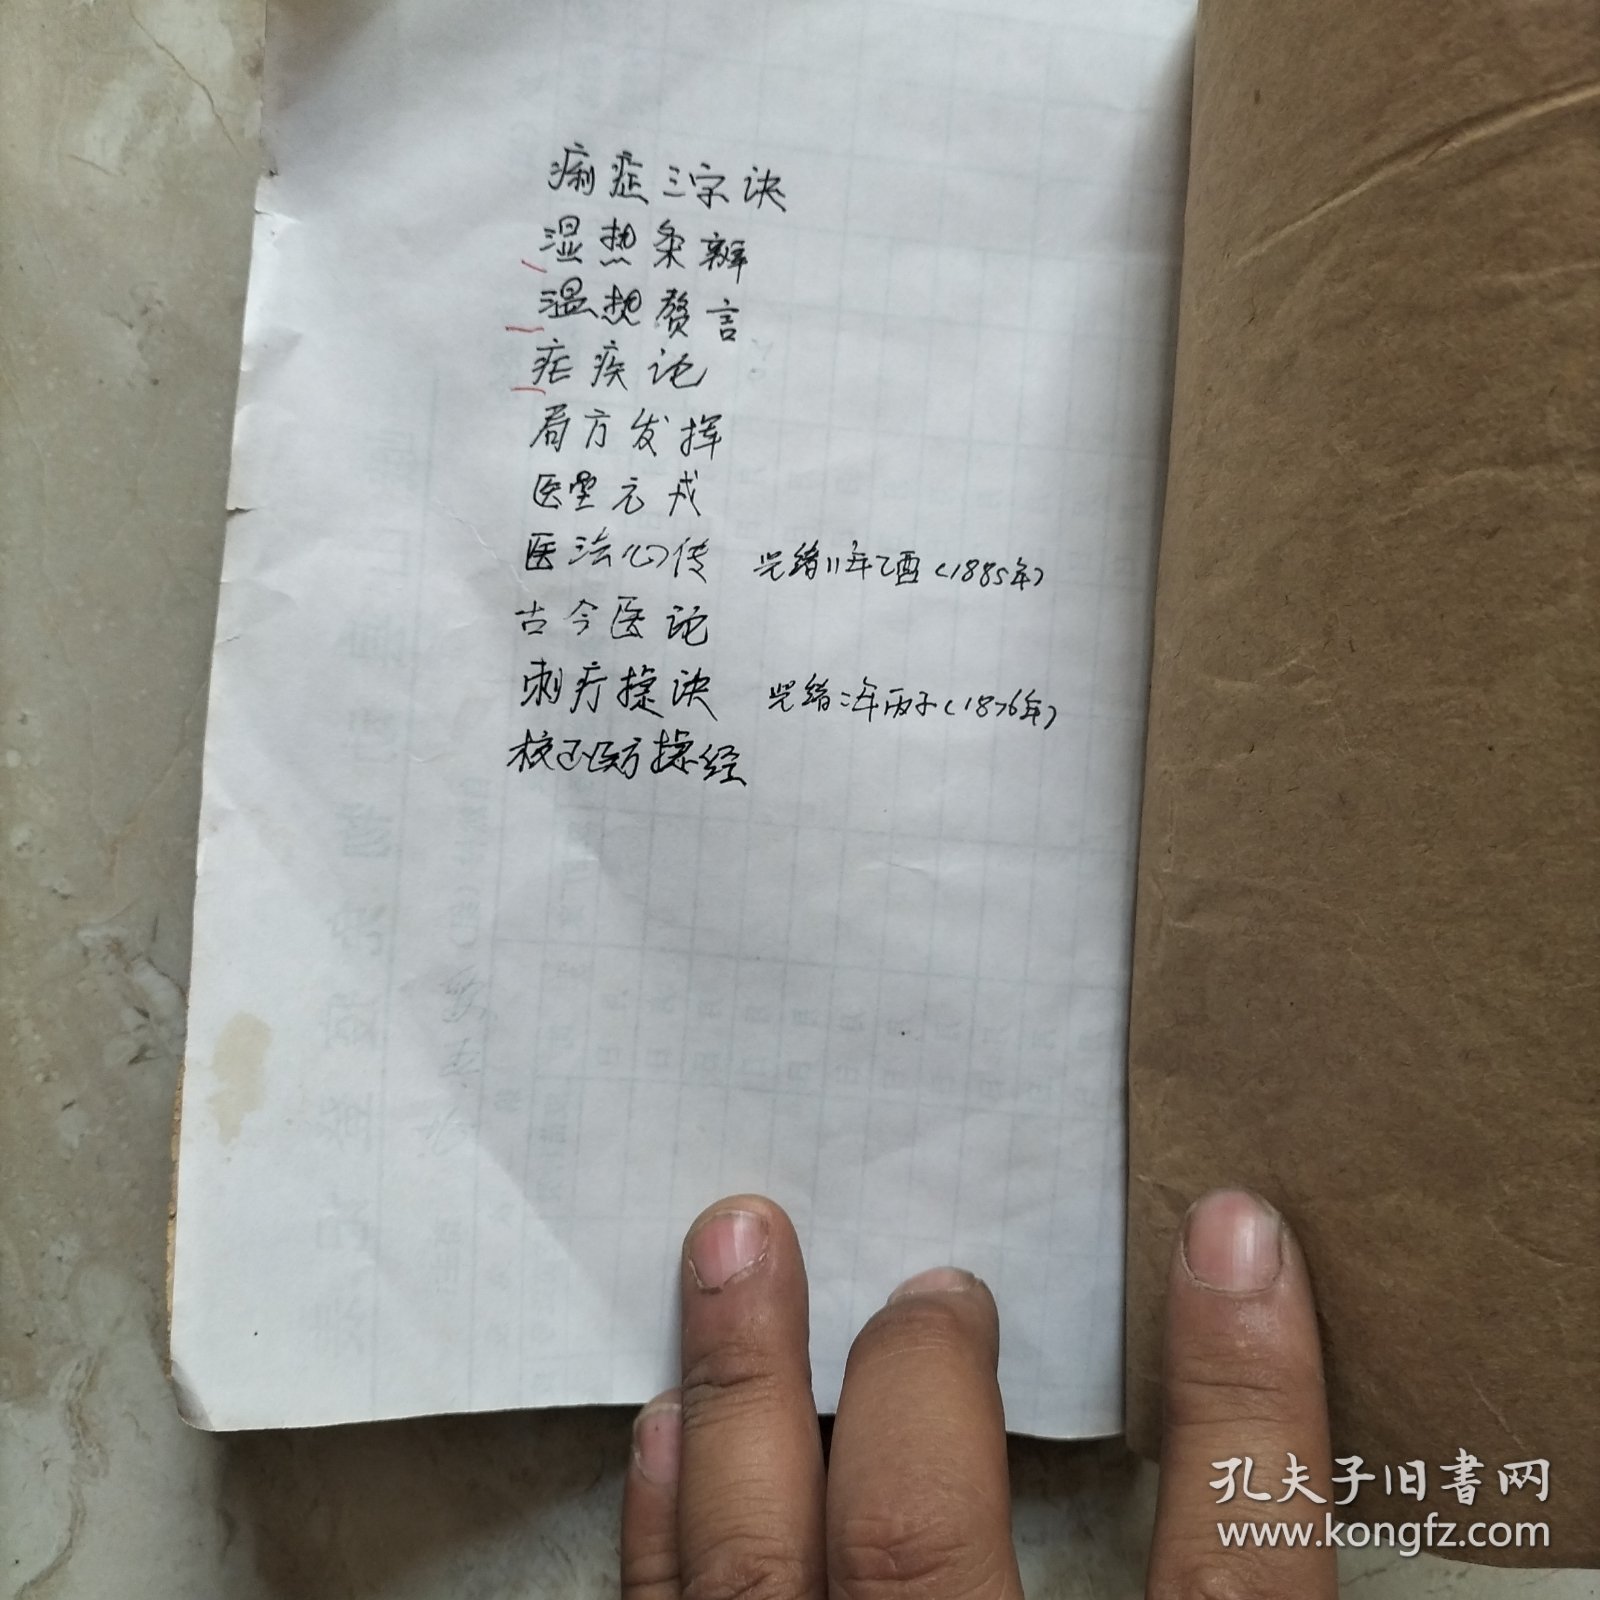 痢症三字诀
湿热条辨
温热赘言
疟疾论
局方发挥
医垒元戎
医法心传 光绪11年乙酉(1885年)
古今医论
刺疔捷诀 光绪二年丙子(1876年)
校正医方捷经
孔夫子旧书网
www.kongfz.com